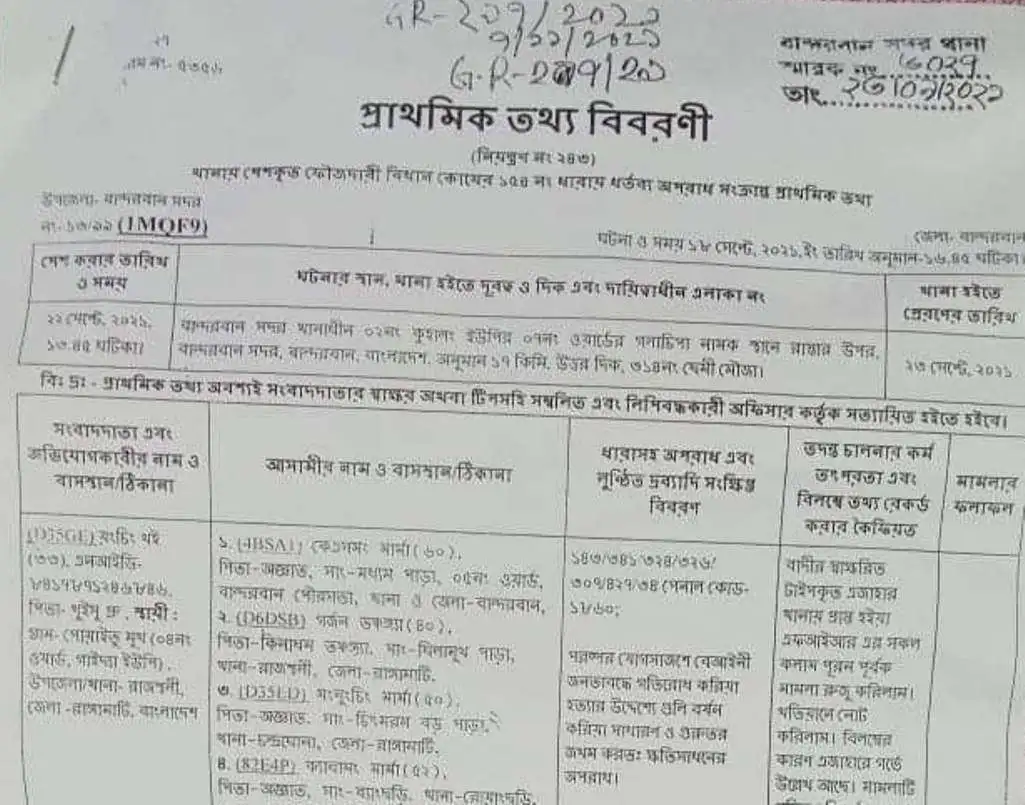 GR-209/2021
9/11/2021
G.R-209/21
বান্দরবান সদর থানা
স্মারক নং
তাং
প্রাথমিক তথ্য বিবরণী
(নিয়ন্ত্রণ নং ২৪৩)
থানায় পেশকৃত ফৌজদারী বিধান কোষের ১৫৪ নং ধারায় ধর্তব্য অপরাধ সংক্রান্ত প্রাথমিক তথ্য
উপজেলা- বান্দরবান সদর
জেলা- বান্দরবান
নং-১৩/৯৯ (1MQF9)
ঘটনা ও সময় ১৮ সেপ্টে, ২০২১, ইং তারিখ অনুমান-১৬.৪৫ ঘটিকা।
পেশ করার তারিখ ও সময়
ঘটনার স্থান, থানা হইতে দূরত্ব ও দিক এবং দায়িত্বাধীন এলাকা নং
থানা হইতে প্রেরণের তারিখ
২২ সেপ্টে, ২০২১,
১৩.৪৫ ঘটিকা।
বান্দরবান সদর থানাধীন ০২নং কুহালং ইউনির ০৭নং ওয়ার্ডের গলাচিপা নামক স্থানে রাস্তার উপর,
বান্দরবান সদর, বান্দরবান, বাংলাদেশ, অনুমান ১৭ কিমি, উত্তর দিক, ৩১৪নং মৌজা।
২৩ সেপ্টে, ২০২১
বিঃ দ্রঃ - প্রাথমিক তথ্য অবশ্যই সংবাদদাতার স্বাক্ষর অথবা টিপসহি সম্বলিত এবং লিপিবদ্ধকারী অফিসার কর্তৃক সত্যায়িত হইতে হইবে।
সংবাদদাতা এবং
অভিযোগকারীর নাম ও
বাসস্থান/ঠিকানা
আসামীর নাম ও বাসস্থান/ঠিকানা
ধারাসহ অপরাধ এবং
লুণ্ঠিত দ্রব্যাদি সংক্ষিপ্ত
বিবরণ
তদন্ত চালনার কর্ম
তৎপরতা এবং
বিলম্বে তথ্য রেকর্ড
করার কৈফিয়ত
মামলার
ফলাফল
(D35GE) মংচিং থই
(৩৩), এনআইডি-
৮৪১৭৮৭১২৪৬৮৪৬,
পিতা- থুইসু প্রু, স্থায়ী :
গ্রাম- পোয়াইতু মুখ (০৪নং
ওয়ার্ড, গাইন্দ্যা ইউপি),
উপজেলা/থানা- রাজস্থলী,
জেলা -রাঙ্গামাটি, বাংলাদেশ
১. (4BSA1) কেএসমং মার্মা (৬০),
পিতা-অজ্ঞাত, সাং-মধ্যম পাড়া, ০৫নং ওয়ার্ড,
বান্দরবান পৌরসভা, থানা ও জেলা-বান্দরবান,
২. (D6DSB) গর্জন তঞ্চঙ্গ্যা (৪০),
পিতা-কিনাধন তঞ্চঙ্গ্যা, সাং-ঘিলামুখ পাড়া,
থানা-রাজস্থলী, জেলা-রাঙ্গামাটি.
৩. (D35ED) মংনুচিং মার্মা (৫০),
পিতা-অজ্ঞাত, সাং-চিৎমরম বড় পাড়া,
থানা-চন্দ্রঘোনা, জেলা-রাঙ্গামাটি.
৪. (82E4P) ক্যাবামং মার্মা (৫২),
পিতা-অজ্ঞাত, সাং-ব্যাংছড়ি, থানা-রোয়াংছড়ি,
১৪৩/৩৪১/৩২৪/৩২৬/
৩০৭/৪২৭/৩৪ পেনাল কোড-
১৮৬০;
পরস্পর যোগসাজশে বেআইনী
জনতাবদ্ধে গতিরোধ করিয়া
হত্যার উদ্দেশ্যে গুলি বর্ষন
করিয়া সাধারণ ও গুরুতর
জখম করতঃ ক্ষতিসাধনের
অপরাধ।
বাদীর স্বাক্ষরিত
টাইপকৃত এজাহার
থানায় প্রাপ্ত হইয়া
এফআইআর এর সকল
কলাম পূরন পূর্বক
মামলা রুজু করিলাম।
খতিয়ানে নোট
করিলাম। বিলম্বের
কারণ এজাহারে গর্ভে
উল্লেখ আছে। মামলাটি